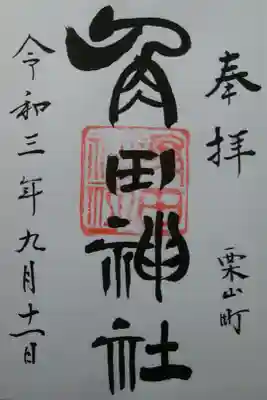 奉拝
栗山町
角田神社
令和三年九月十一日